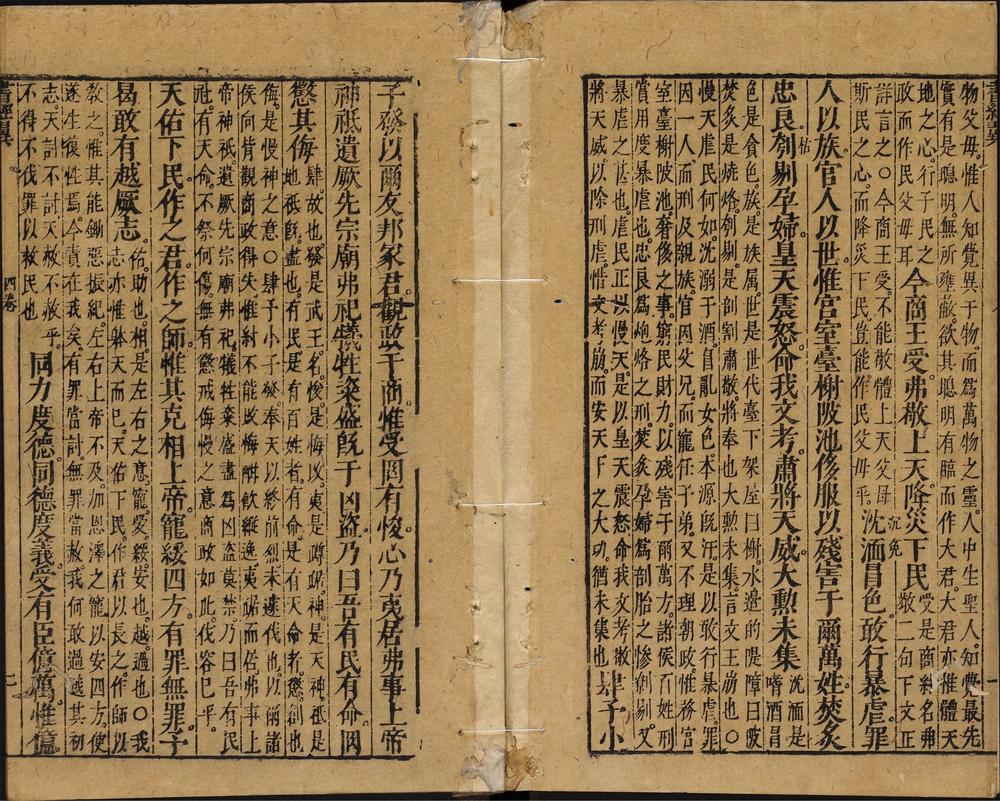 物父母。惟人知覺異于物。而爲萬物之靈。人中生聖人。知覺最先
實有是聰明。無所雍蔽。欲其聰明有臨而作大君。大君亦惟體天
地之心。行于民之
政而作民父母耳
今商王受。弗敬上天。降災下民
受是商紂名弗
敬二句下文正
詳言之〇今商王受。不能敬體上天父母
斯民之心。而降災下民豈能作民父母乎。
沈湎冒色。敢行暴虐。罪
人以族。官人以世。惟宮室臺榭陂池侈服以殘害于爾萬姓。焚炙
忠良刳剔孕婦。皇天震怒。命我文考。肅將天威大勲未集
沈湎是
嗜酒冒
色是貪色。族。是族属。世是世代臺下架屋曰榭。水邊的隄障曰陂
焚炙是燒烙。刳剔。是剖割肅敬。將奉也大勲未集言文王崩也〇
慢天虐民何如。沈溺于酒。自亂女色。本源旣汙。是以敢行暴虐。罪
因一人而刑及親族官因父兄。而寵任子弟。又不理朝政。惟務宮
室臺榭陂池。奢侈之事。窮民財力以殘害于爾萬方。諸侯百姓刑
賞用度暴虐也。忠良爲炮烙之刑。焚炙孕婦。爲剖胎之惨刳剔。又
暴虐之甚也。虐民正以慢天。是以皇天震怒。命我文考。敬
將天威。以除刑虐。惜文考崩。而安天下之大功。猶未集也
肆予小
子發以爾友邦冢君。觀政于商。惟受罔有悛心。乃夷居弗事上帝
神祇。遺厥先宗廟弗祀。犧牲粢盛。旣于凶盜。乃曰吾有民有命。罔
懲其侮
肆故也。發是武王名。悛是悔改。夷是蹲踞。神是天神。祇是
地祇旣。盡也。有民是有百姓者。有命。是有天命者。懲創也
侮。是慢神之意〇肆予小子發奉天以終前烈未遽伐也。以爾諸
侯向背觀商政得失。惟紂不能改悔酣飲縱逸夷踞而居弗事上
帝神祇。遺厥先宗廟弗祀。犧牲粢盛盡爲凶盗莫禁乃曰吾有民
社。有天命。不祭何傷。無有懲戒侮慢之意商政如此。伐容已乎。
天佑下民。作之君。作之師。惟其克相上帝。寵綏四方。有罪無罪。予
曷敢有越厥志。
佑。助也。相。是左右之意。寵愛。綏安也。越。過也〇我
志亦惟躰天而已。天佑下民。作君以長之。作師以
教之。惟其能鋤惡振紀。左右上帝不及。加恩澤之寵以安四方。使
遂生復性焉。今責在我矣。有罪當討。無罪當赦。我何敢過越其初
志。天討不討天赦不赦乎。
不得不伐罪以救民也
同力度德。同德度義。受有臣億萬。惟億
四卷
七